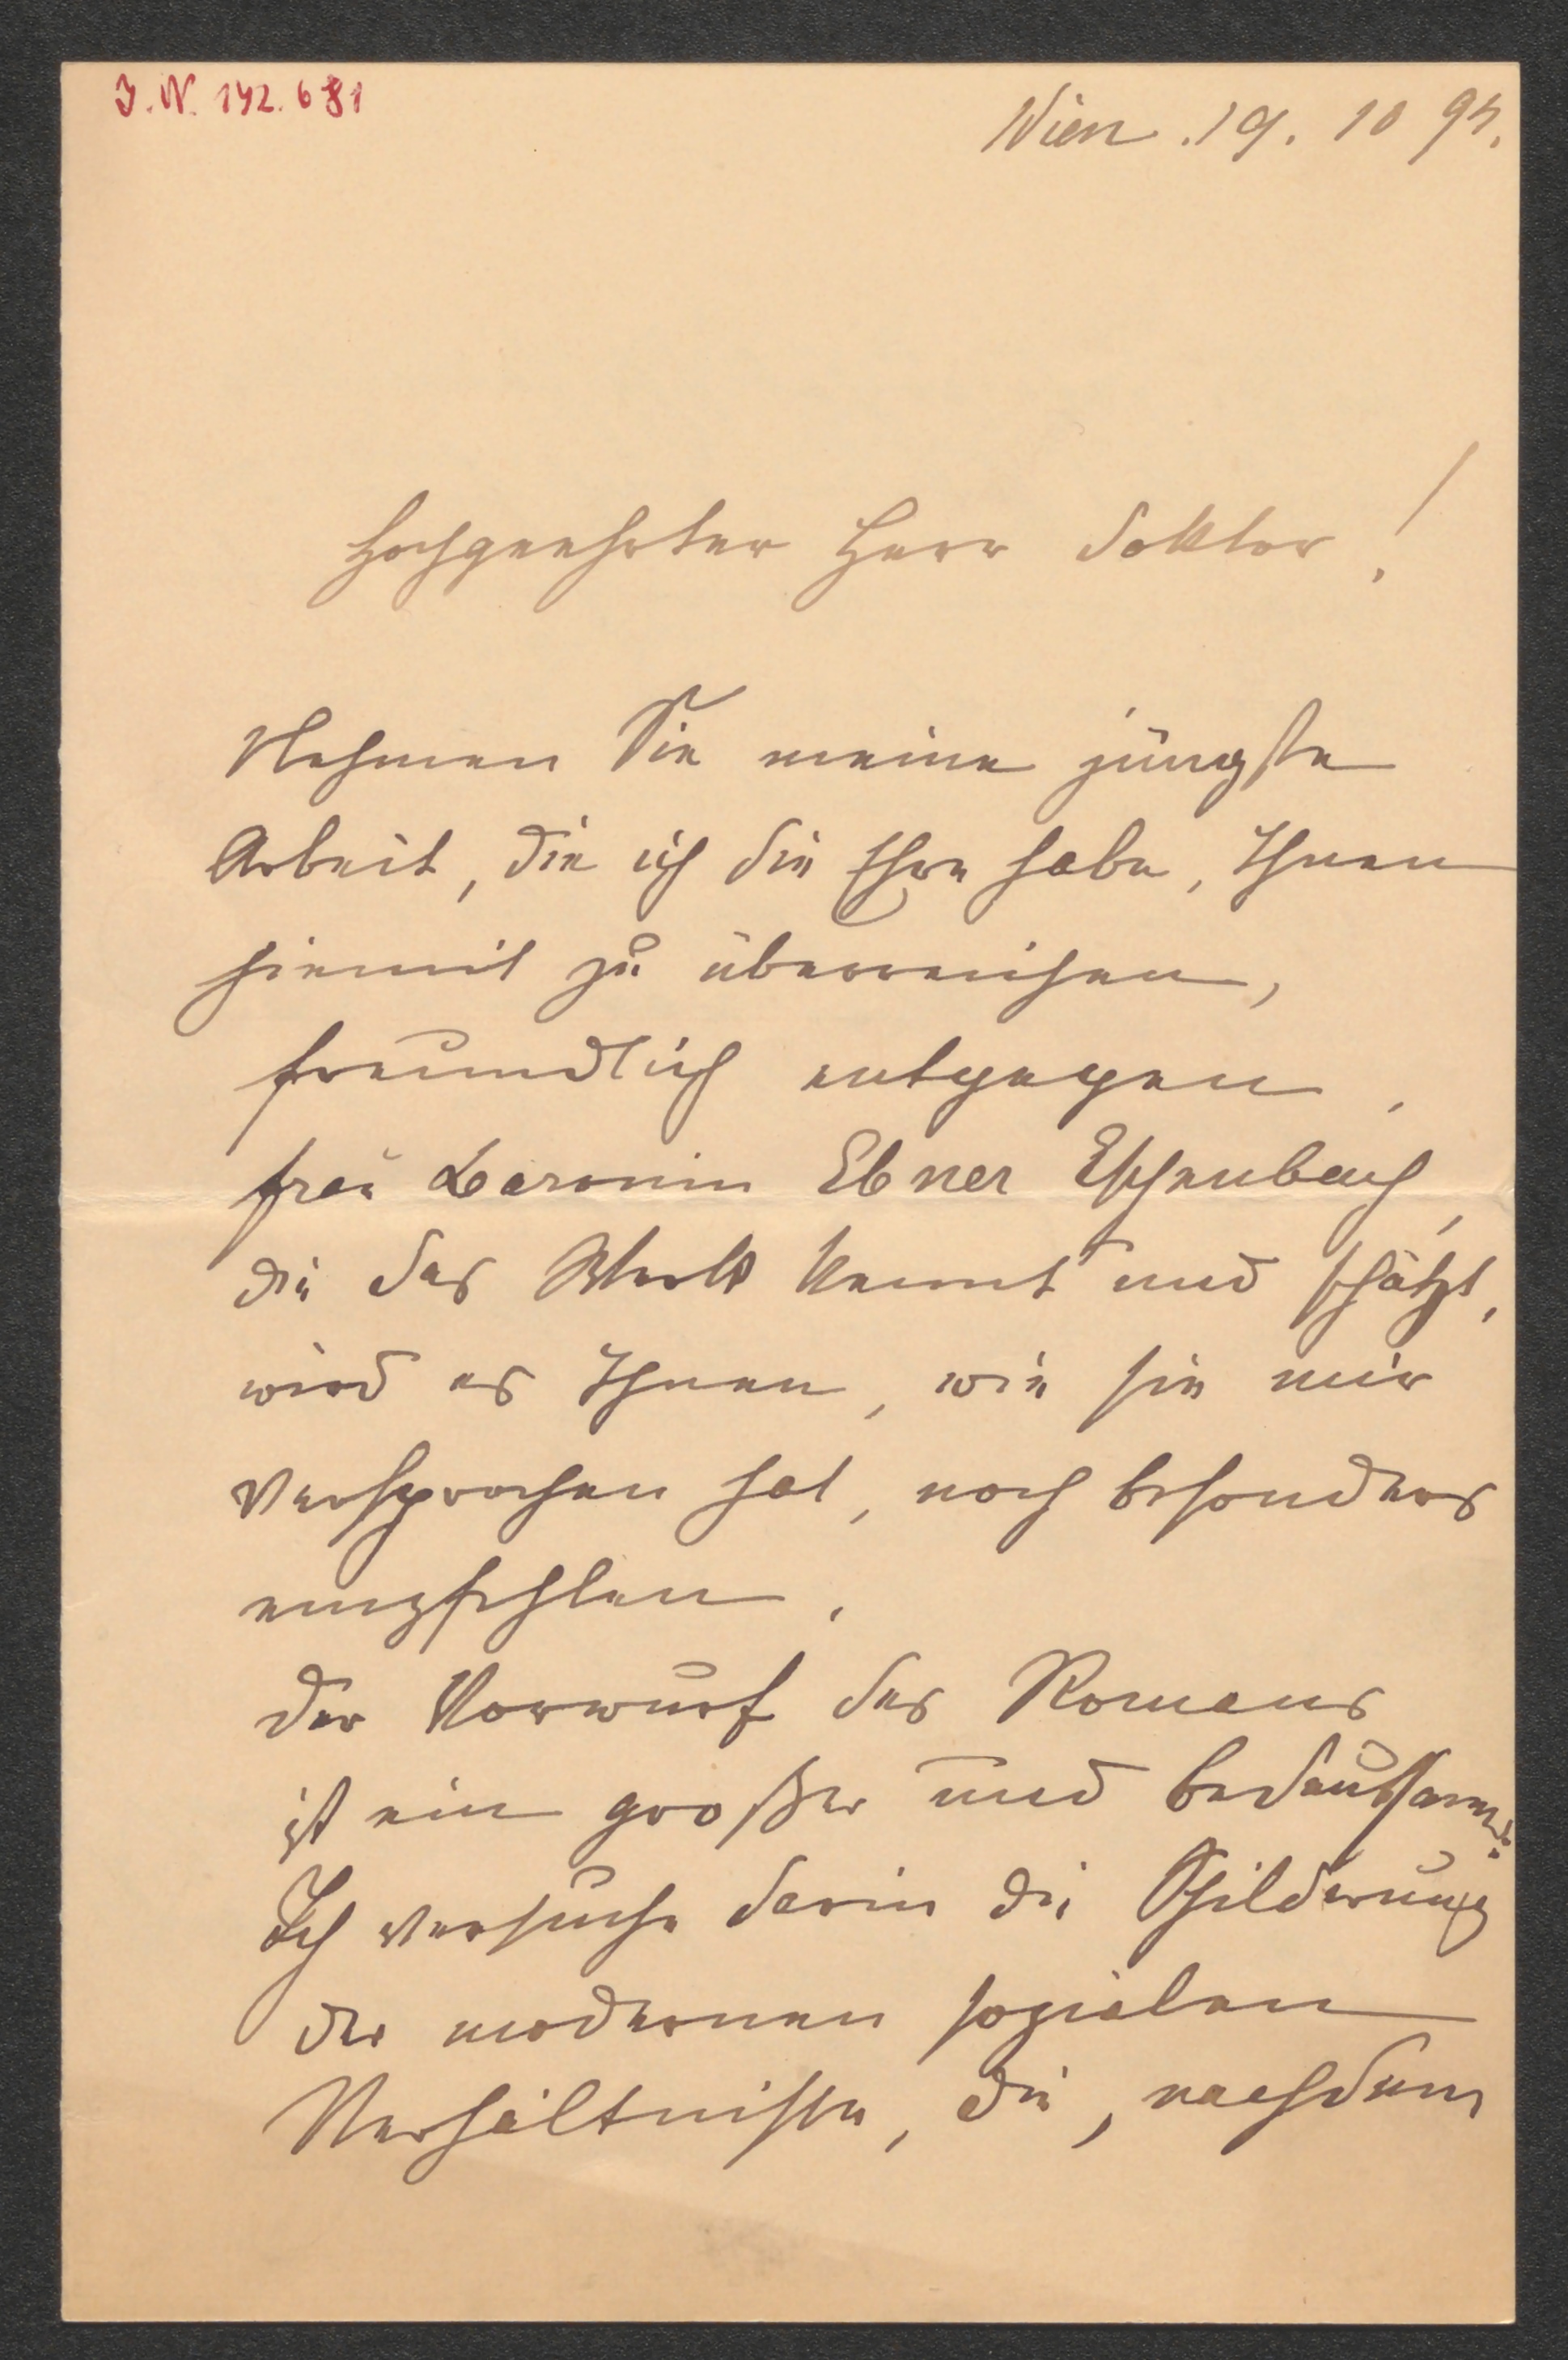 J.N. 142.681
Wien. 19. 10 94.
Hochgeehrter Herr Doktor!
Nehmen Sie meine jüngste
Arbeit, die ich die Ehre habe, Ihnen
hiemit zu überreichen,
freundlich entgegen.
Frau Baronin Ebner Eschenbach,
die das Werk kennt und schätzt,
wird es Ihnen, wie sie mir
versprochen hat, noch besonders
empfehlen.
Der Vorwurf des Romans
ist ein großer und bedeutsamer:
Ich versuche darin die Schilderung
der modernen sozialen
Verhältnisse, die, nachdem